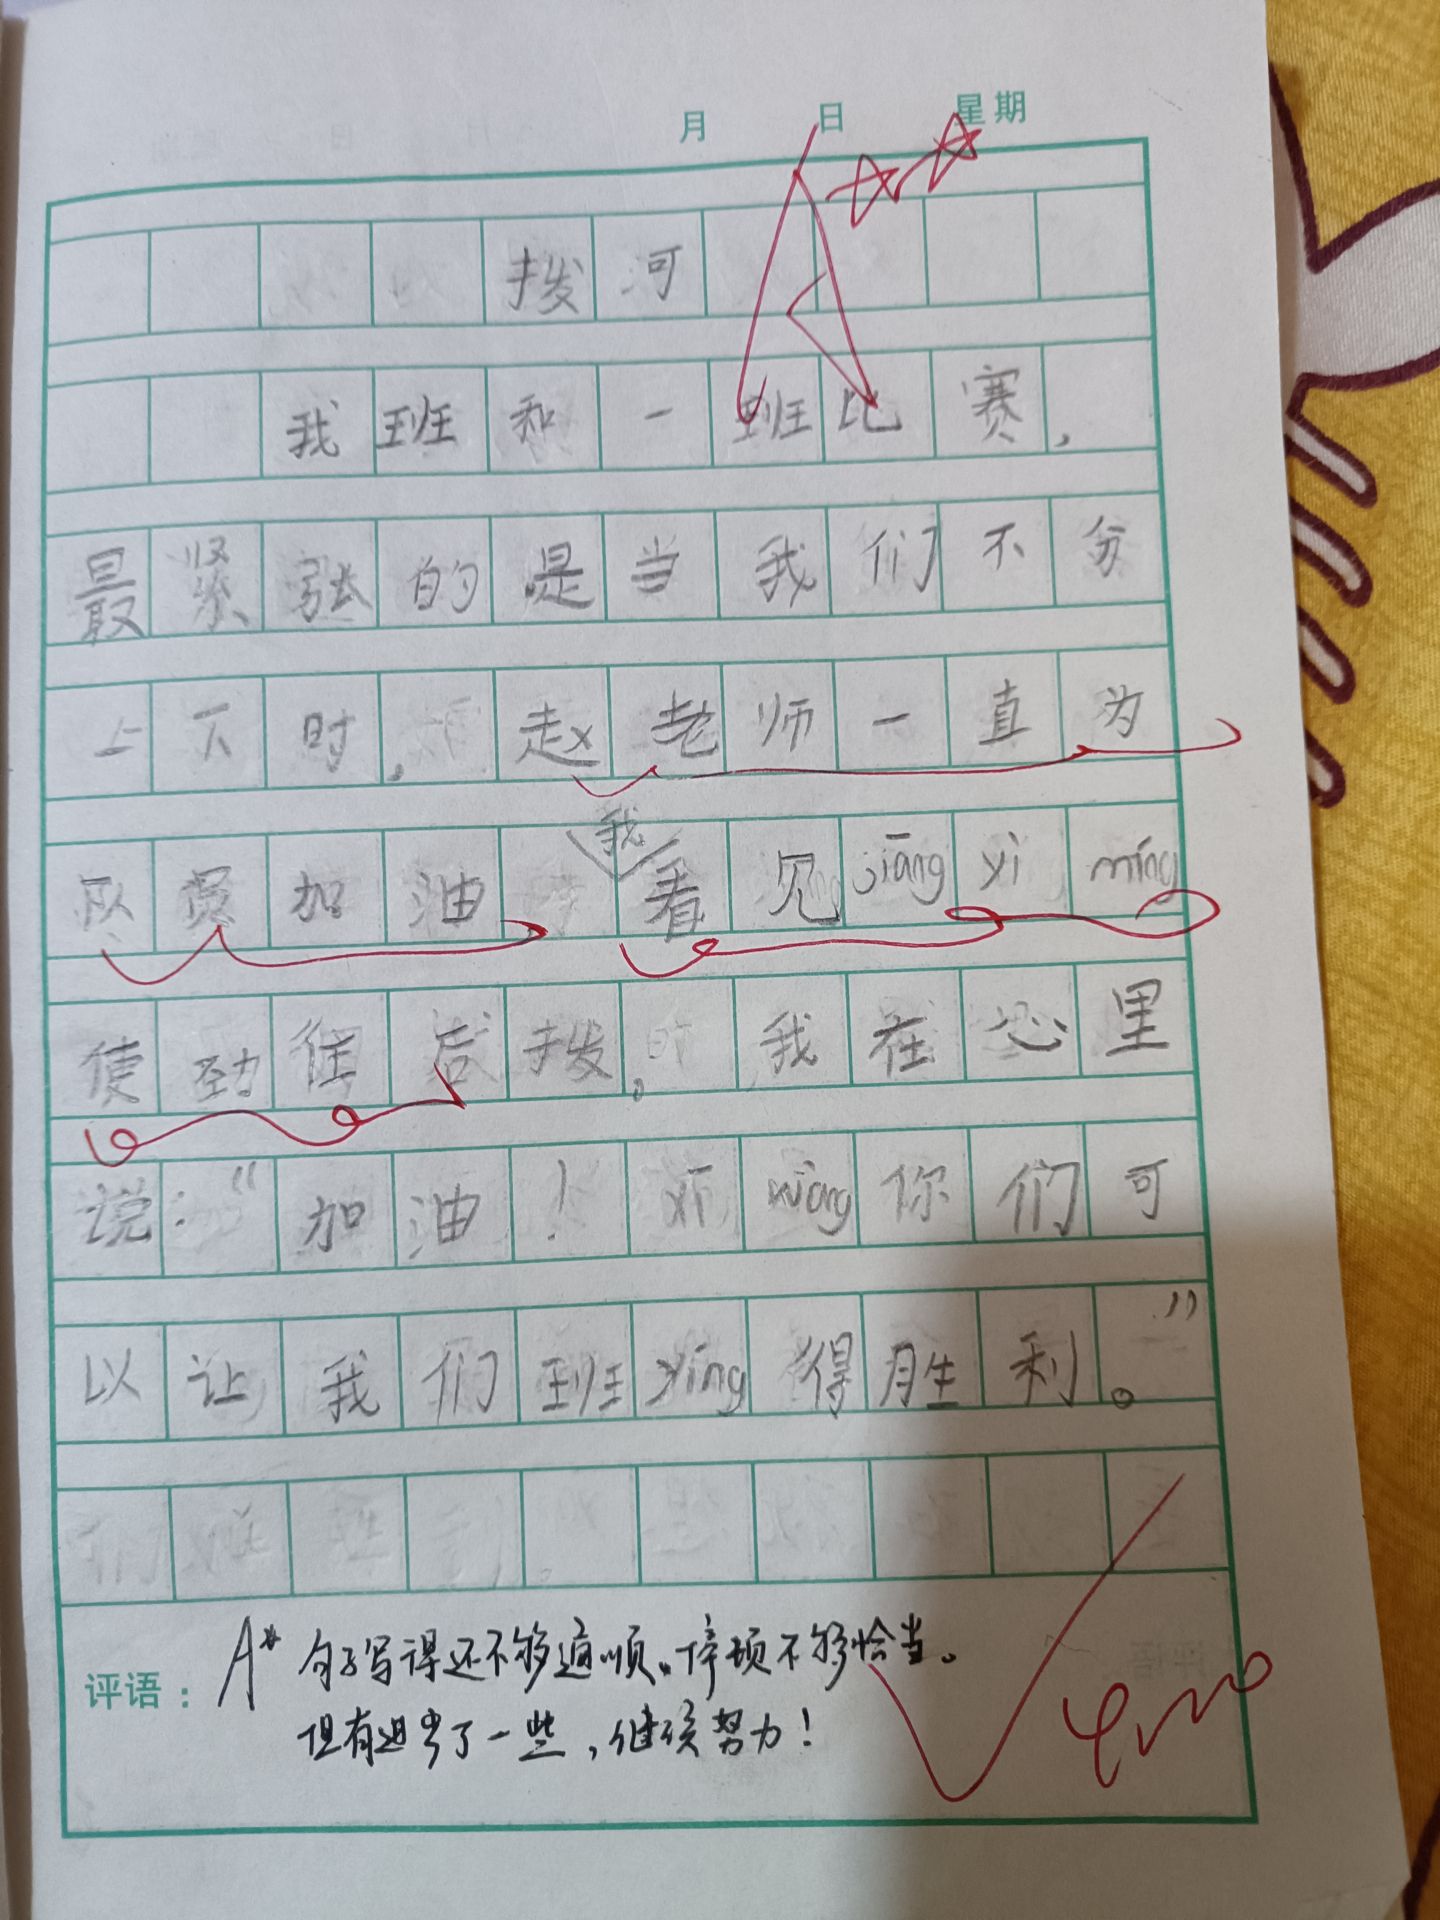 月 日 星期
拨河
我班和一班比赛,
最紧张的是当我们不分
上下时,赵老师一直为
队员加油 我看见jiāng yì míng
使劲往后拨。我在心里
说:“加油!xī wàng你们可
以让我们班yíng得胜利。”
评语: A* 句子写得还不够通顺。停顿不够恰当。
但有进步了一些,继续努力!